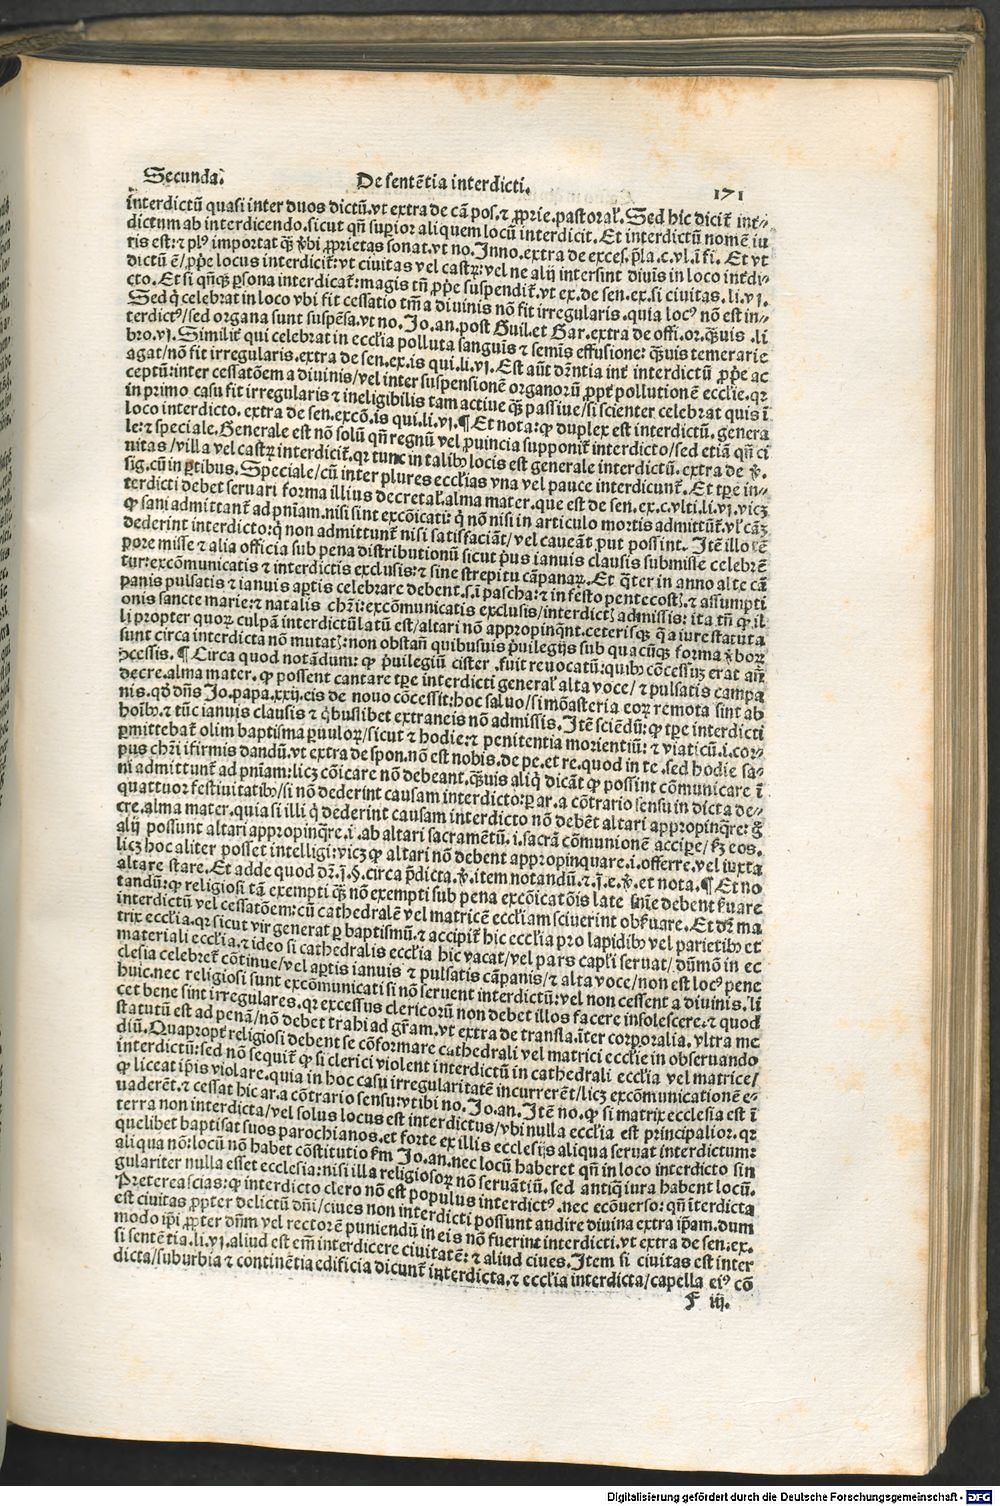 Secunda. De sentētia interdicti. 171
interdictū quasi inter duos dictū.vt extra de cā pos.⁊ ꝓprie.pastoraƚ. Sed hic dicit̄ int̄⸗
dictum ab interdicendo.sicut qn̄ suꝑior aliquem locū interdicit. Et interdictū nomē iu
ris est:⁊ plꝰ importat qȝ ꝟbi ꝓprietas sonat.vt no. Inno.extra de exces. p̄la.c.vl.ī fi. Et vt
dictū ē/ꝓṗe locus interdicit̄:vt ciuitas vel castꝝ:vel ne alij intersint diuis in loco int̄di⸗
cto. Et si qn̄qȝ ꝑsona interdicat̄:magis tn̄ ꝓṗe suspendit̄.vt ex.de sen.ex.si ciuitas.li.vj.
Sed q̇ celebrat in loco vbi fit cessatio tm̄ a diuinis nō fit irregularis.quia locꝰ nō est in⸗
terdictꝰ/sed organa sunt suspēsa.vt no. Jo.an.post Guil.et Gar.extra de offi.or.qȝuis .li
bro.vj. Similit̄ qui celebrat in ecclīa polluta sanguīs ⁊ semīs effusione: qȝuis temerarie
agat/nō fit irregularis.extra de sen.ex.is qui.li.vj. Est aūt dr̄ntia int̄ interdictū ꝓṗe ac
ceptū:inter cessatōem a diuinis/vel inter suspensionē organorū ꝓpt̄ pollutionē ecclīe.qꝛ
in primo casu fit irregularis ⁊ ineligibilis tam actiue qȝ passiue/si scienter celebrat quis ī
loco interdicto. extra de sen.excō.is qui.li.vj.¶ Et nota:ꝙ duplex est interdictū. genera
le:⁊ speciale. Generale est nō solū qn̄ regnū vel ꝓuincia supponit̄ interdicto/sed etiā qn̄ ci
uitas/villa vel castꝝ interdicit̄.qꝛ tunc in talibꝰ locis est generale interdictū. extra de ꝟ.
sig.cū in ꝑtibus. Speciale/cū inter plures ecclīas vna vel pauce interdicunt̄. Et tꝑe in⸗
terdicti debet seruari forma illius decretaƚ.alma mater.que est de sen.ex.c.vlti.li.vj.vicȝ
ꝙ sani admittant̄ ad pn̄iam.nisi sint excōicati: q̇ nō nisi in articulo mortis admittūt̄.vƚ cāȝ
dederint interdicto:q̇ non admittunt̄ nisi satisfaciāt/vel caueāt ꝓut possint. Itē illo tē
pore misse ⁊ alia officia sub pena distributionū sicut pͥus ianuis clausis submisse celebrē
tur:excōmunicatis ⁊ interdictis exclusis:⁊ sine strepitu cāpanaꝝ. Et q̇ter in anno alte cā
panis pulsatis ⁊ ianuis aꝑtis celebrare debent.s.ī pascha:⁊ in festo pentecostꝭ.⁊ assumpti
onis sancte marie:⁊ natalis chr̄i:excōmunicatis exclusis/interdictꝭ admissis: ita tn̄ ꝙ il
li propter quoꝝ culpā interdictū latū est/altari nō appropinq̇nt.ceterisqȝ q̄ a iure statuta
sunt circa interdicta nō mutatꝭ:non obstan̄ quibusuis pͥuilegijs sub quacūqȝ forma ꝟboꝝ
ꝯcessis.¶ Circa quod notādum: ꝙ pͥuilegiū cister .fuit reuocatū:quibꝰ cōcessuȝ erat an̄
decre.alma mater.ꝙ possent cantare tꝑe interdicti generaƚ alta voce/⁊ pulsatis campa
nis.qd̄ dn̄s Jo.papa.xxij.eis de nouo cōcessit:hoc saluo/si mōasteria eoꝝ remota sint ab
hoībꝰ.⁊ tūc ianuis clausis ⁊ q̇buslibet extraneis nō admissis. Itē sciēdū:ꝙ tꝑe interdicti
ꝑmittebat̄ olim baptisma ꝑuuloꝝ/sicut ⁊ hodie:⁊ penitentia morientiū:⁊ viaticū.i.cor⸗
pus chr̄i ifirmis dandū.vt extra de spon.nō est nobis.de pe.et re.quod in te .sed hodie sa⸗
ni admittunt̄ ad pn̄iam:licȝ cōicare nō debeant.qȝuis aliq̇ dicāt ꝙ possint cōmunicare ī
quattuor festiuitatibꝰ/si nō dederint causam interdicto:ꝑ ar.a cōtrario sensu in dicta de⸗
cre.alma mater.quia si illi q̇ dederint causam interdicto nō debēt altari appropinq̇re: gͦ
alij possunt altari appropinq̇re.i.ab altari sacramētū.i.sacrā cōmunionē acciꝑe/ẜȝ eos.
licȝ hoc aliter posset intelligi:vicȝ ꝙ altari nō debent appropinquare.i.offerre.vel iuxta
altare stare. Et adde quod dr̄.j̄.§.circa p̄dicta.ꝟ.item notandū.⁊.j̄.e.ꝟ.et nota.¶ Et no
tandū:ꝙ religiosi tā exempti qȝ nō exempti sub pena excōicatōis late snīe debent ẜuare
interdictū vel cessatōem:cū cathedralē vel matricē ecclīam sciuerint obẜuare. Et dr̄ ma
trix ecclīa.qꝛ sicut vir generat ꝑ baptismū.⁊ accipit̄ hic ecclīa pro lapidibꝰ vel parietibꝰ et
materiali ecclīa.⁊ ideo si cathedralis ecclīa hic vacat/vel pars capƚi seruat/dūmō in ec
clesia celebret̄ cōtinue/vel aꝑtis ianuis ⁊ pulsatis cāpanis/⁊ alta voce/non est locꝰ pene
huic.nec religiosi sunt excōmunicati si nō seruent interdictū:vel non cessent a diuinis.li
cet bene sint irregulares.qꝛ excessus clericorū non debet illos facere insolescere.⁊ quod
statutū est ad penā/nō debet trahi ad gr̄am.vt extra de transla.īter corporalia.vltra me
diū. Quapropt̄ religiosi debent se cōformare cathedrali vel matrici ecclīe in obseruando
interdictū:sed nō sequit̄ ꝙ si clerici violent interdictū in cathedrali ecclīa vel matrice/
ꝙ liceat ip̄is violare.quia in hoc casu irregularitatē incurrerēt/licȝ excōmunicationē e⸗
uaderēt.⁊ cessat hic ar.a cōtrario sensu:vt ibi no. Jo.an. Itē no.ꝙ si matrix ecclesia est ī
terra non interdicta/vel solus locus est interdictus/vbi nulla ecclīa est principalior.qꝛ
quelibet baptisat suos parochianos.et forte ex illis ecclesijs aliqua seruat interdictum:
aliqua nō:locū nō habet cōstitutio ẜm Jo.an.nec locū haberet qn̄ in loco interdicto sin
gulariter nulla esset ecclesia:nisi illa religiosoꝝ nō seruātiū. sed antiq̇ iura habent locū.
Preterea scias:ꝙ interdicto clero nō est populus interdictꝰ.nec ecōuerso:qn̄ īterdicta
est ciuitas ꝓpter delictū dn̄i/ciues non interdicti possunt audire diuina extra ip̄am.dum
modo ip̄i ꝓpter dn̄m vel rectorē puniendū in eis nō fuerint interdicti.vt extra de sen.ex.
si sentētia.li.vj.aliud est em̄ interdicere ciuitatē: ⁊ aliud ciues. Item si ciuitas est inter
dicta/suburbia ⁊ continētia edificia dicunt̄ interdicta.⁊ ecclīa interdicta/capella eiꝰ cō
F iij.
Digitalisierung gefördert durch die Deutsche Forschungsgemeinschaft - DFG